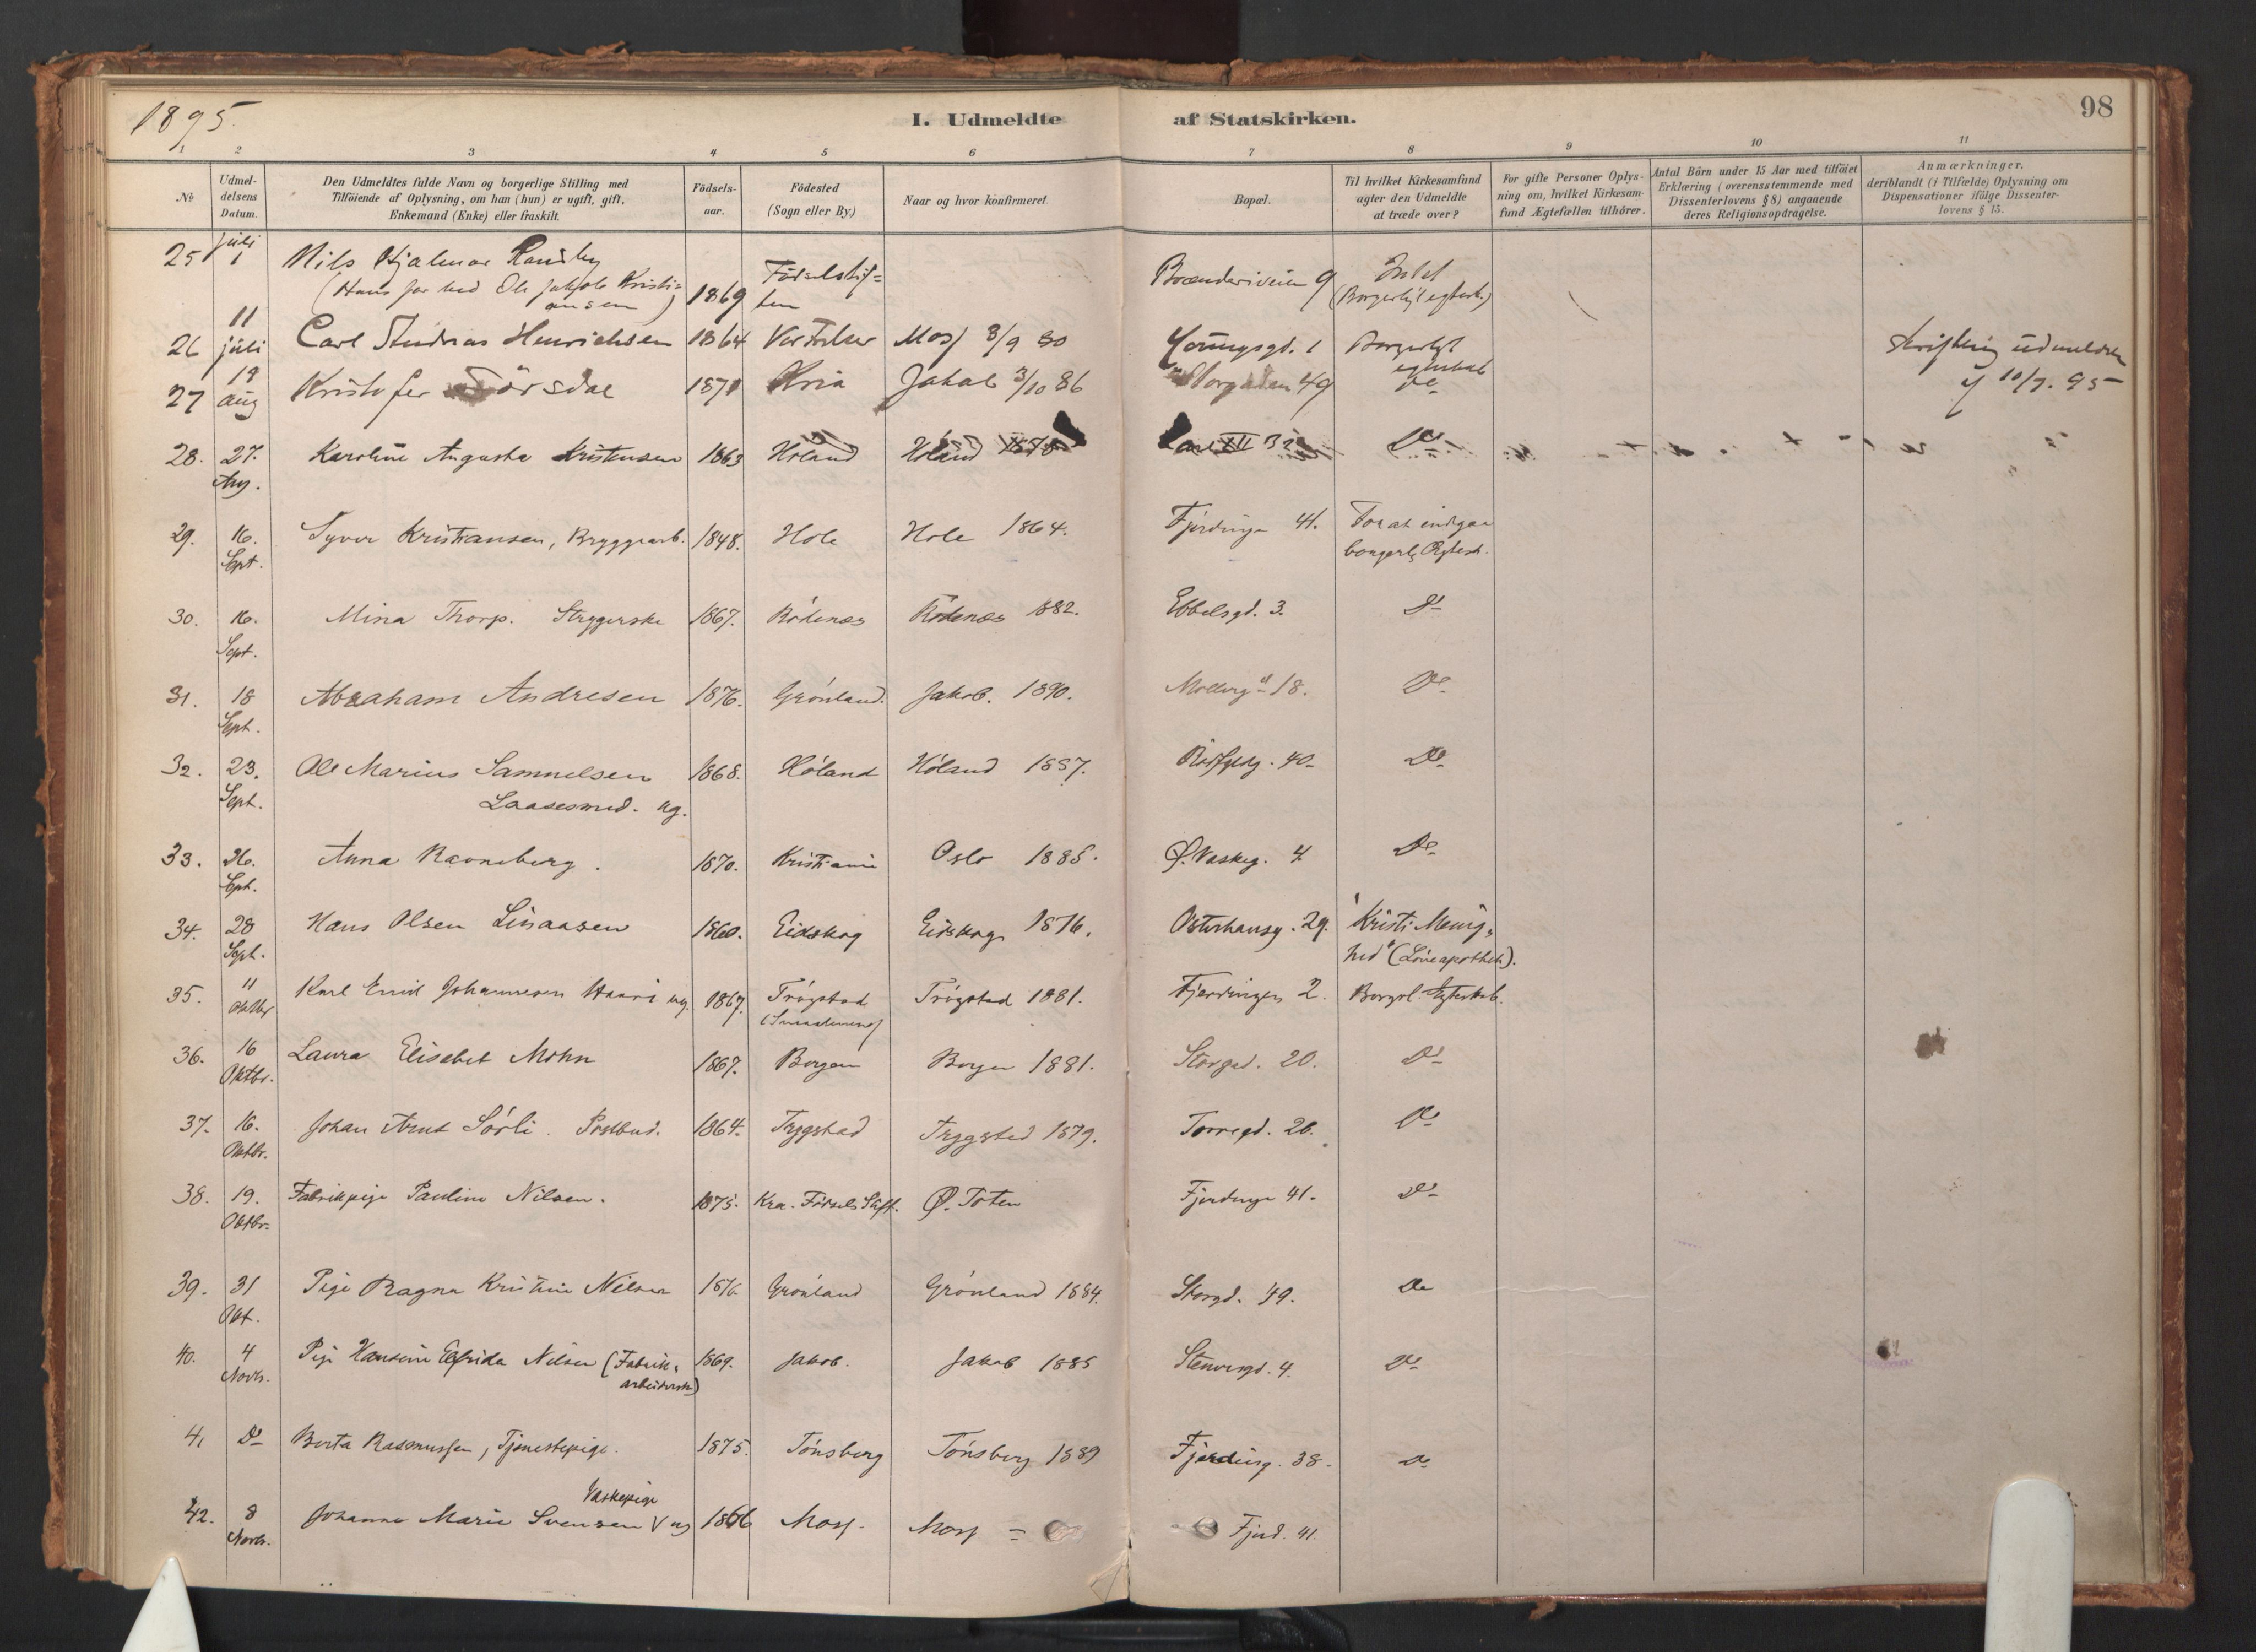 1895.
I. Udmeldte af Statskirken.
98
1 2 3 4 5 6 7 8 9 10 11
№
Udmeldelsens Datum.
Den Udmeldtes fulde Navn og borgerlige Stilling med
Tilföiende af Oplysning, om han (hun) er ugift, gift,
Enkemand (Enke) eller fraskilt.
Födselsaar.
Födested
(Sogn eller By.)
Naar og hvor konfirmeret.
Bopæl.
Til hvilket Kirkesamfund
agter den Udmeldte
at træde over?
For gifte Personer Oplys-
ning om, hvilket Kirkesam-
fund Ægtefællen tilhörer.
Antal Börn under 15 Aar med tilföiet
Erklæring (overensstemmende med
Dissenterlovens § 8) angaaende
deres Religionsopdragelse.
Anmærkninger,
deriblandt (i Tilfælde) Oplysning om
Dispensationer ifölge Dissenter-
lovens § 15.
25 juli 1 Nils Hjalmar
(Hans far hed Ole Jakob Kristi=
ansen) 1869 Födselsstif=
ten 9 Intet
26 11 juli Carl Andreas Henrichsen 1864 Moss 3/9 80 1 Borgerligt
Skriftlig udmeldse
10/7. 95
27 19 aug Kristofer 1871 Kria Jakob 3/10 86 Storgaden 49 Do
28. 27. Aug. Karoline Augusta Kristensen 1863 Höland Höland Do
29. 16. Sept. Syver Kristiansen, Bryggearb. 1848. Hole Hole 1864. Fjerdingn 41. For at indgaa
borgerlg Ægtesk.
30. 16. Sept. Mina Thorp. Strygerske 1867. Rödenæs Rödenæs 1882. Ebbelsgd. 3. Do
31. 18 Sept. Abraham Andresen 1876. Grönland. Jakob. 1890. Mollergd 18. Do
32. 23. Sept. Ole Marius Samuelsen 1868. Höland Höland 1887. 40. Do
Laasesmed. ug.
33. 26. Sept. Anna Ravneberg. 1870. Kristiania Oslo 1885. Ø. Vaskeg. 4 Do
34. 28 Sept. Hans Olsen Linaasen 1860. Eidskog Eidskog 1876. Osterhausg. 29. "Kristi Menig=
hed" (Löveapothek).
35. 11 Oktbr Karl Emil Johannesen ug. 1867. Trögstad Trögstad 1881. Fjerdingen 2. Borgrl. Ægteskab.
36. 16 Oktbr. Laura Elisabet Mohn 1867. Bergen Bergen 1881. Storgd. 20. Do
37. 16. Oktbr. Johan Arnt Sörli. Postbud. 1864. Trygstad Trygstad 1879. Torvegd. 20. Do
38. 19. Oktbr. Fabrikpige Pauline Nilsen. 1875. Kra. Födsels Stift. Ø. Toten Fjerdingn 41. Do
39. 31 Okt. Pige Ragna Kristine Nilsen 1876. Grönland Grönland 1884. Storgd. 49. Do
40. 4 Novbr. Pige Hansine Elfrida Nilsen (Fabrik=
arbeiderske) 1869. Jakob. Jakob 1885 Stenersgd. 4. Do
41 Do Berta Rasmussen, Tjenestepige. 1875. Tönsberg Tönsberg 1889 Fjerding. 38. Do
Vaskepige
42. 8 Novbr. Johanne Marie Svensen ug 1866 Moss. Moss Fjerd. 41.